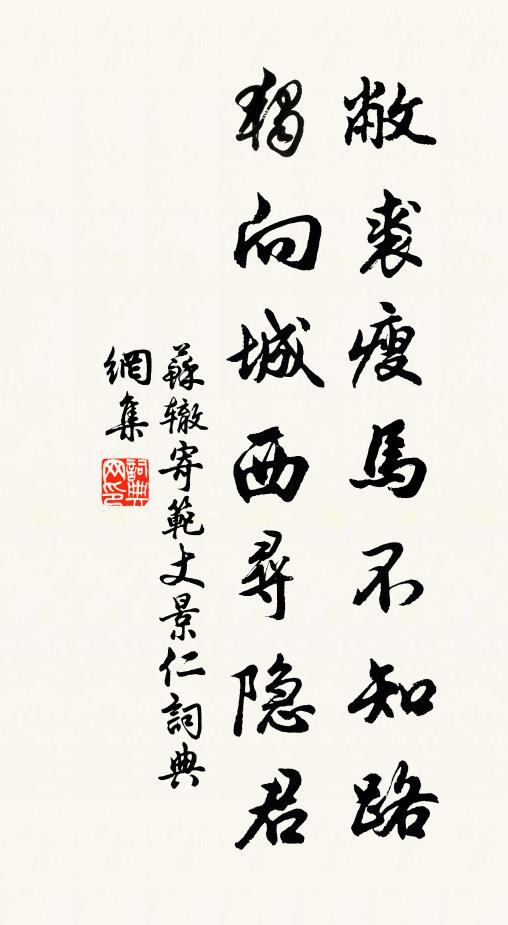 敝裘瘦馬不知路
獨向城西尋隐君
蘇辙寄範丈景仁詞典
網集
詞典网印